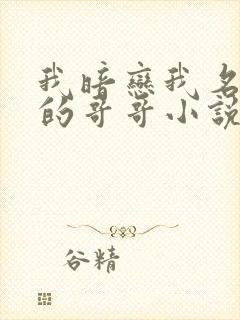 我暗戀我名
的哥哥小說
谷精